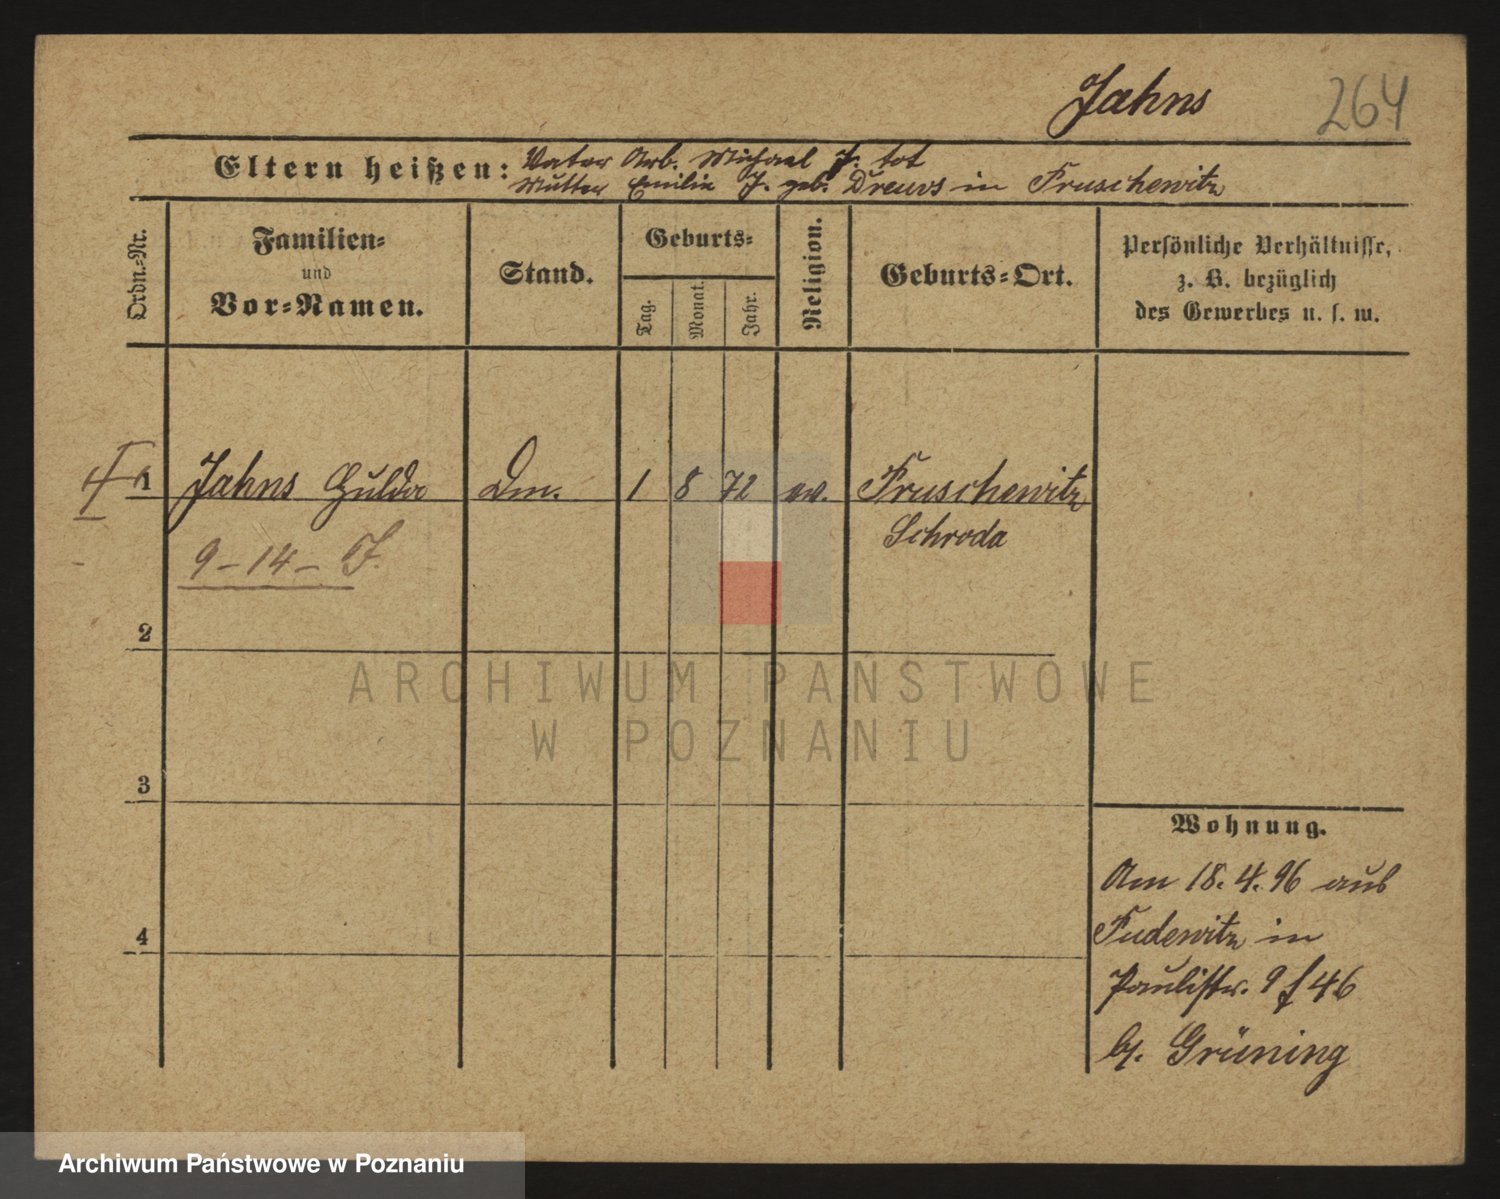 Jahns 264
Eltern heißen: Vater Arb. Michael J. tot
Mutter Emilie J. geb. Drews in Pruschewitz
Ordn.-Nr.
Familien-
und
Vor-Namen.
Stand.
Geburts-
Tag.
Monat.
Jahr.
Religion.
Geburts-Ort.
Persönliche Verhältnisse,
z. B. bezüglich
des Gewerbes u. s. w.
1 Jahns Hulda Dm. 1 8 72 ev. Pruschewitz
Schroda
9-14- J.
2
3
4
Wohnung.
Am 18.4.96 aus
Pudewitz in
Paulistr. 9
b. Grüning
ARCHIWUM PAŃSTWOWE
W POZNANIU
Archiwum Państwowe w Poznaniu